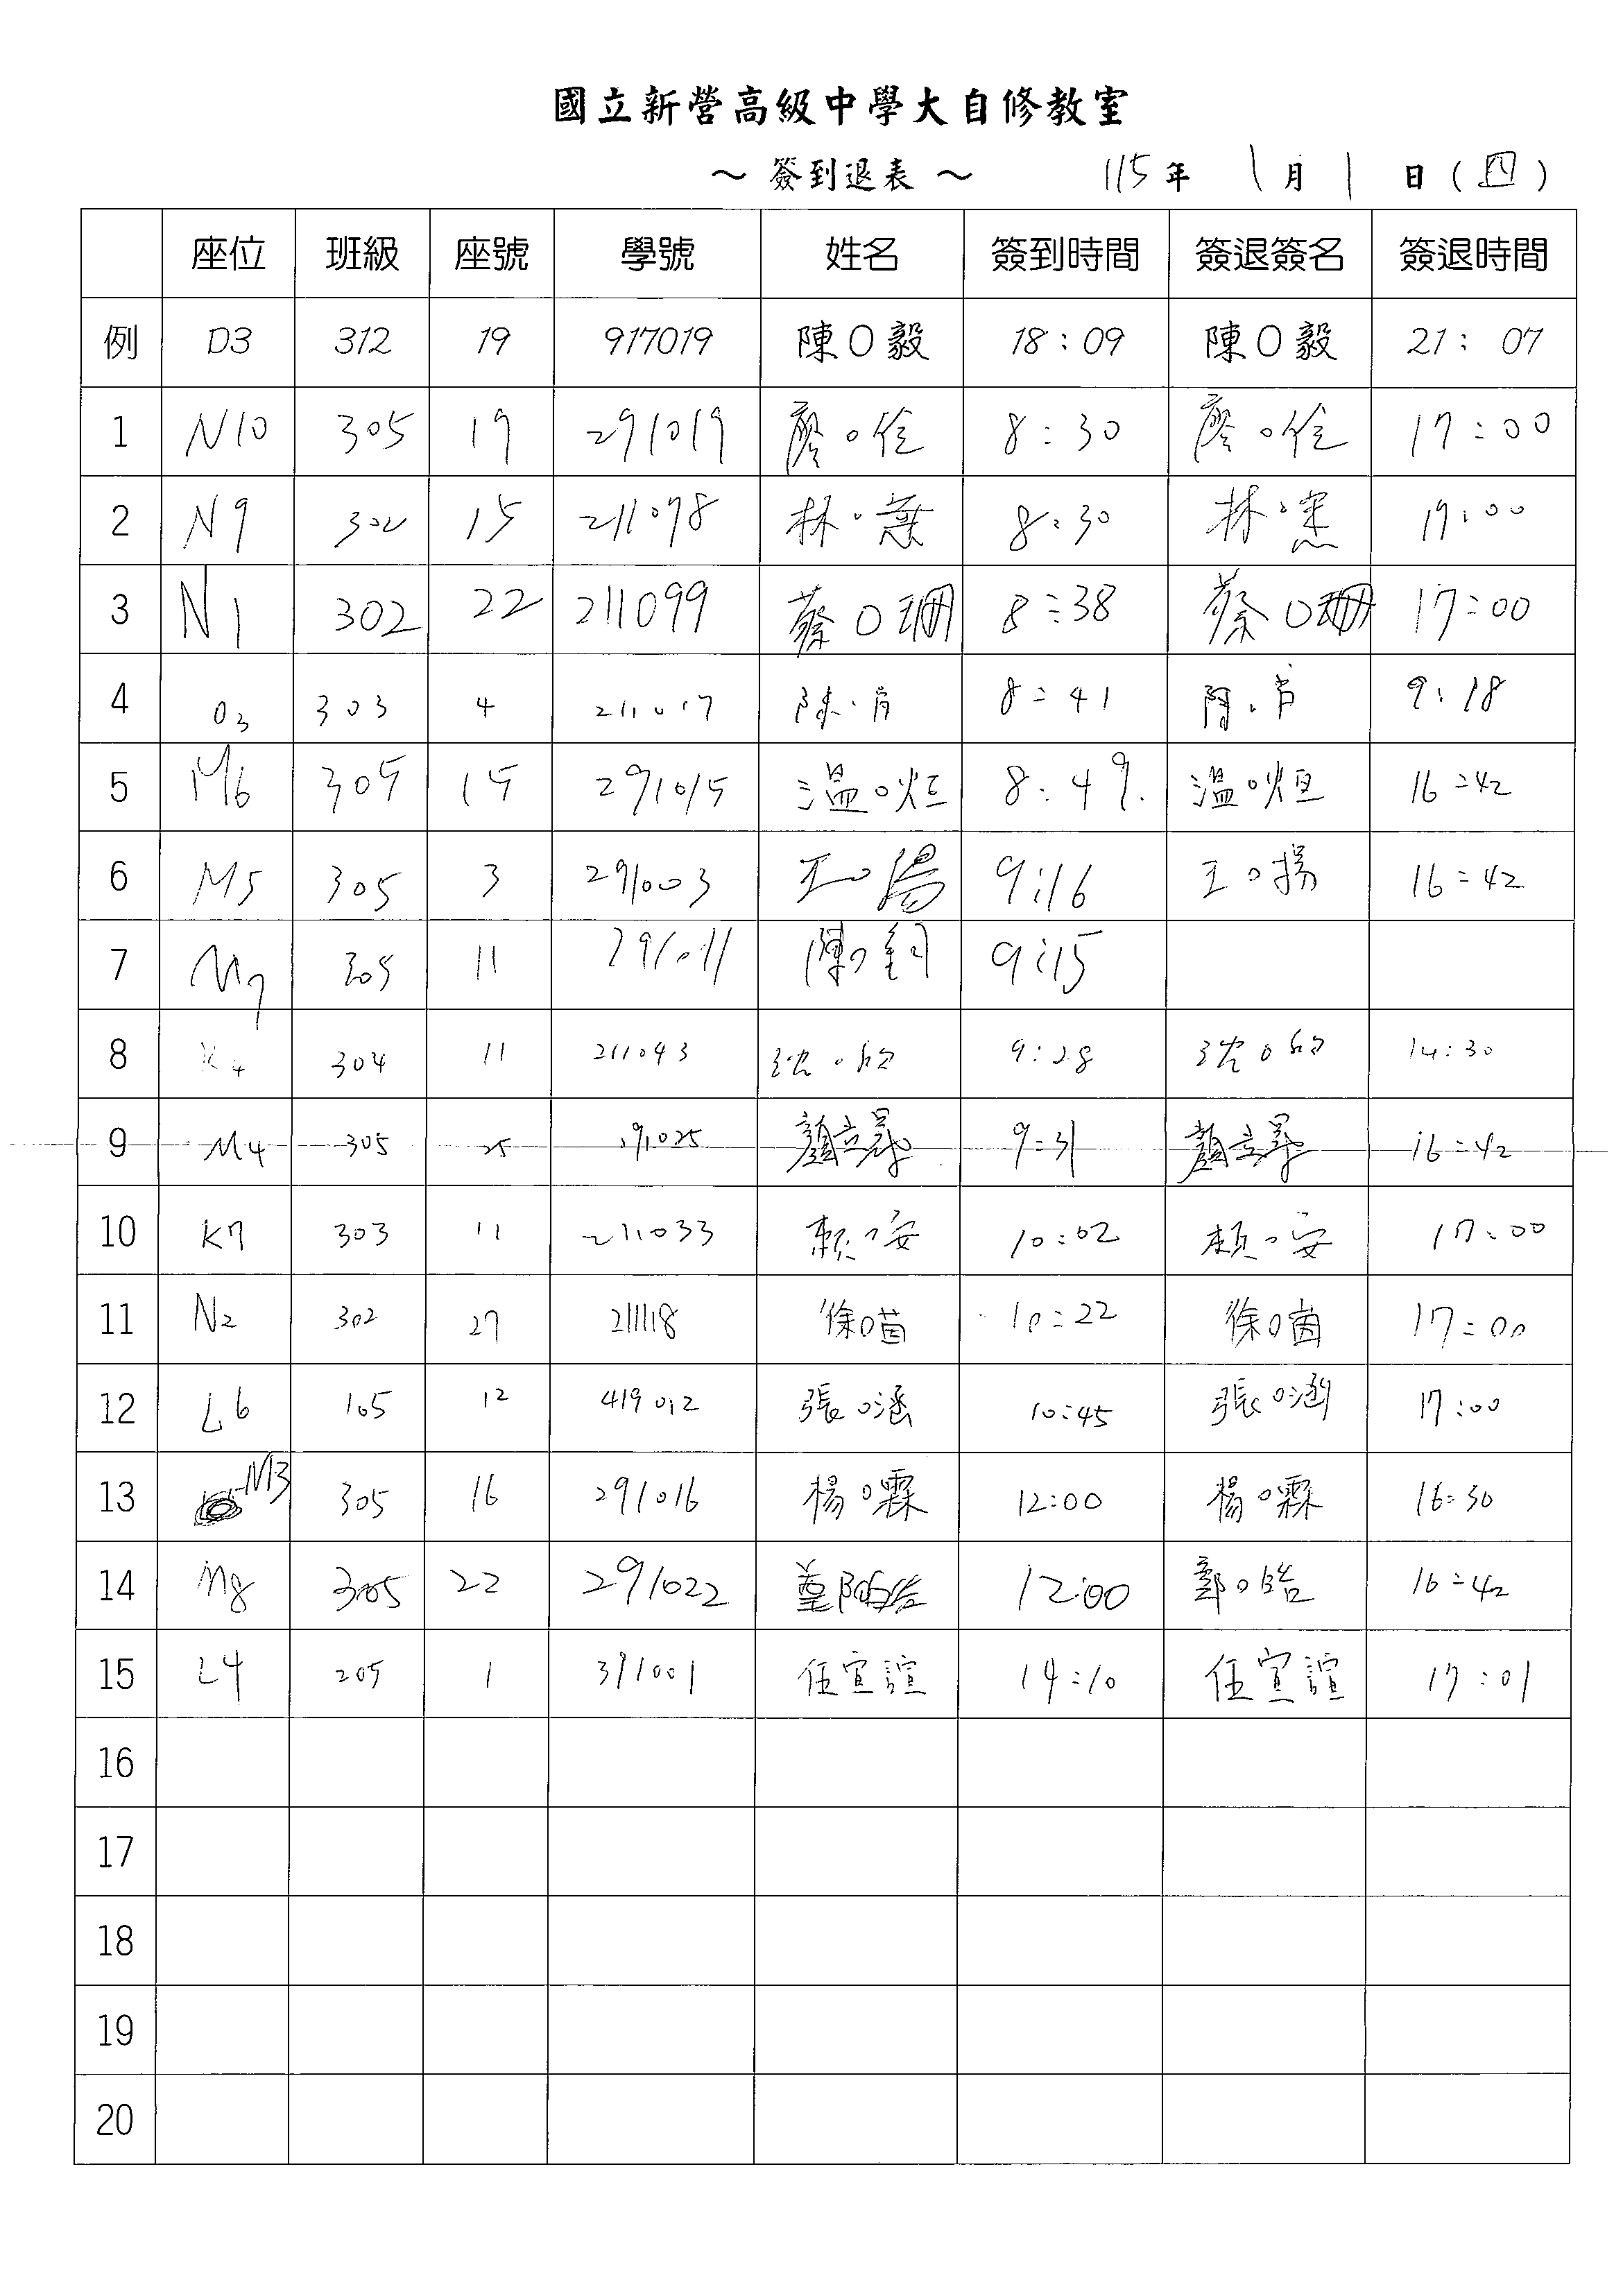 國立新營高級中學大自修教室
～ 簽到退表 ～ 115 年 1 月 1 日 ( 四 )
座位 班級 座號 學號 姓名 簽到時間 簽退簽名 簽退時間
例 D3 312 19 917019 陳O毅 18:09 陳O毅 21:07
1 N10 305 19 291019 廖O佺 8:30 廖O佺 17:00
2 N9 302 15 211098 林 8:30 林 17:00
3 N1 302 22 211099 蔡O珊 8:38 蔡O珊 17:00
4 O3 303 4 211017 陳 8:41 9:18
5 M6 305 15 291015 溫O烜 8:49. 溫O烜 16:42
6 M5 305 3 291003 王O揚 9:16 王O揚 16:42
7 M7 305 11 291011 陳O鈞 9:15
8 K4 304 11 211043 沈O 9:28 沈O 14:30
9 M4 305 25 291025 顏立 9:31 顏立 16:42
10 K7 303 11 211033 賴O安 10:02 賴O安 17:00
11 N2 302 27 211118 徐O茵 10:22 徐O茵 17:00
12 L6 105 12 419012 張O涵 10:45 張O涵 17:00
13 M3 305 16 291016 楊O霖 12:00 楊O霖 16:30
14 M8 305 22 291022 12:00 鄭O晧 16:42
15 L4 205 1 391001 任宣誼 14:10 任宣誼 17:01
16
17
18
19
20